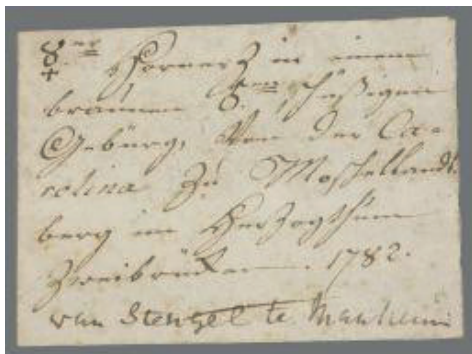 8.
Hornerz in einem
braunen 8. füssigen
Gebürg, Von der Ca-
rolina Zu Moschellandts-
berg im Herzogthum
Zweibrücken. 1782.
van Stengel te Manheim